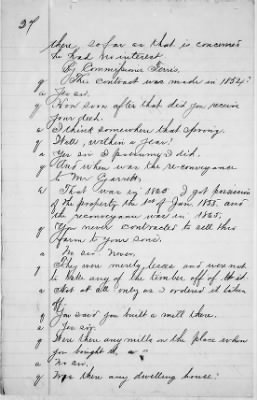 27
there so far as that is concerned
he had no interest.
By Commissioner Ferris.
q This contract was made in 1854?
a Yes sir.
q How soon after that did you receive
your deed.
a I think somewhere that spring.
q Well, within a year?
a Yes sir I presume I did.
q And when was the re-conveyance
to Mr Garrett.
a That was in 1865. I got possession
of the property the 1st of Jan. 1855. and
the reconveyance was in 1865.
q You never contracted to sell this
farm to your sons.
a No sir. Never.
q They were merely leases and were not
to take any of the timber off of it.
a Not at all only as I ordered it taken
off.
q You said you built a mill there.
a Yes sir.
q Were there any mills on the place when
you bought it.
a No sir.
q Was there any dwelling house?